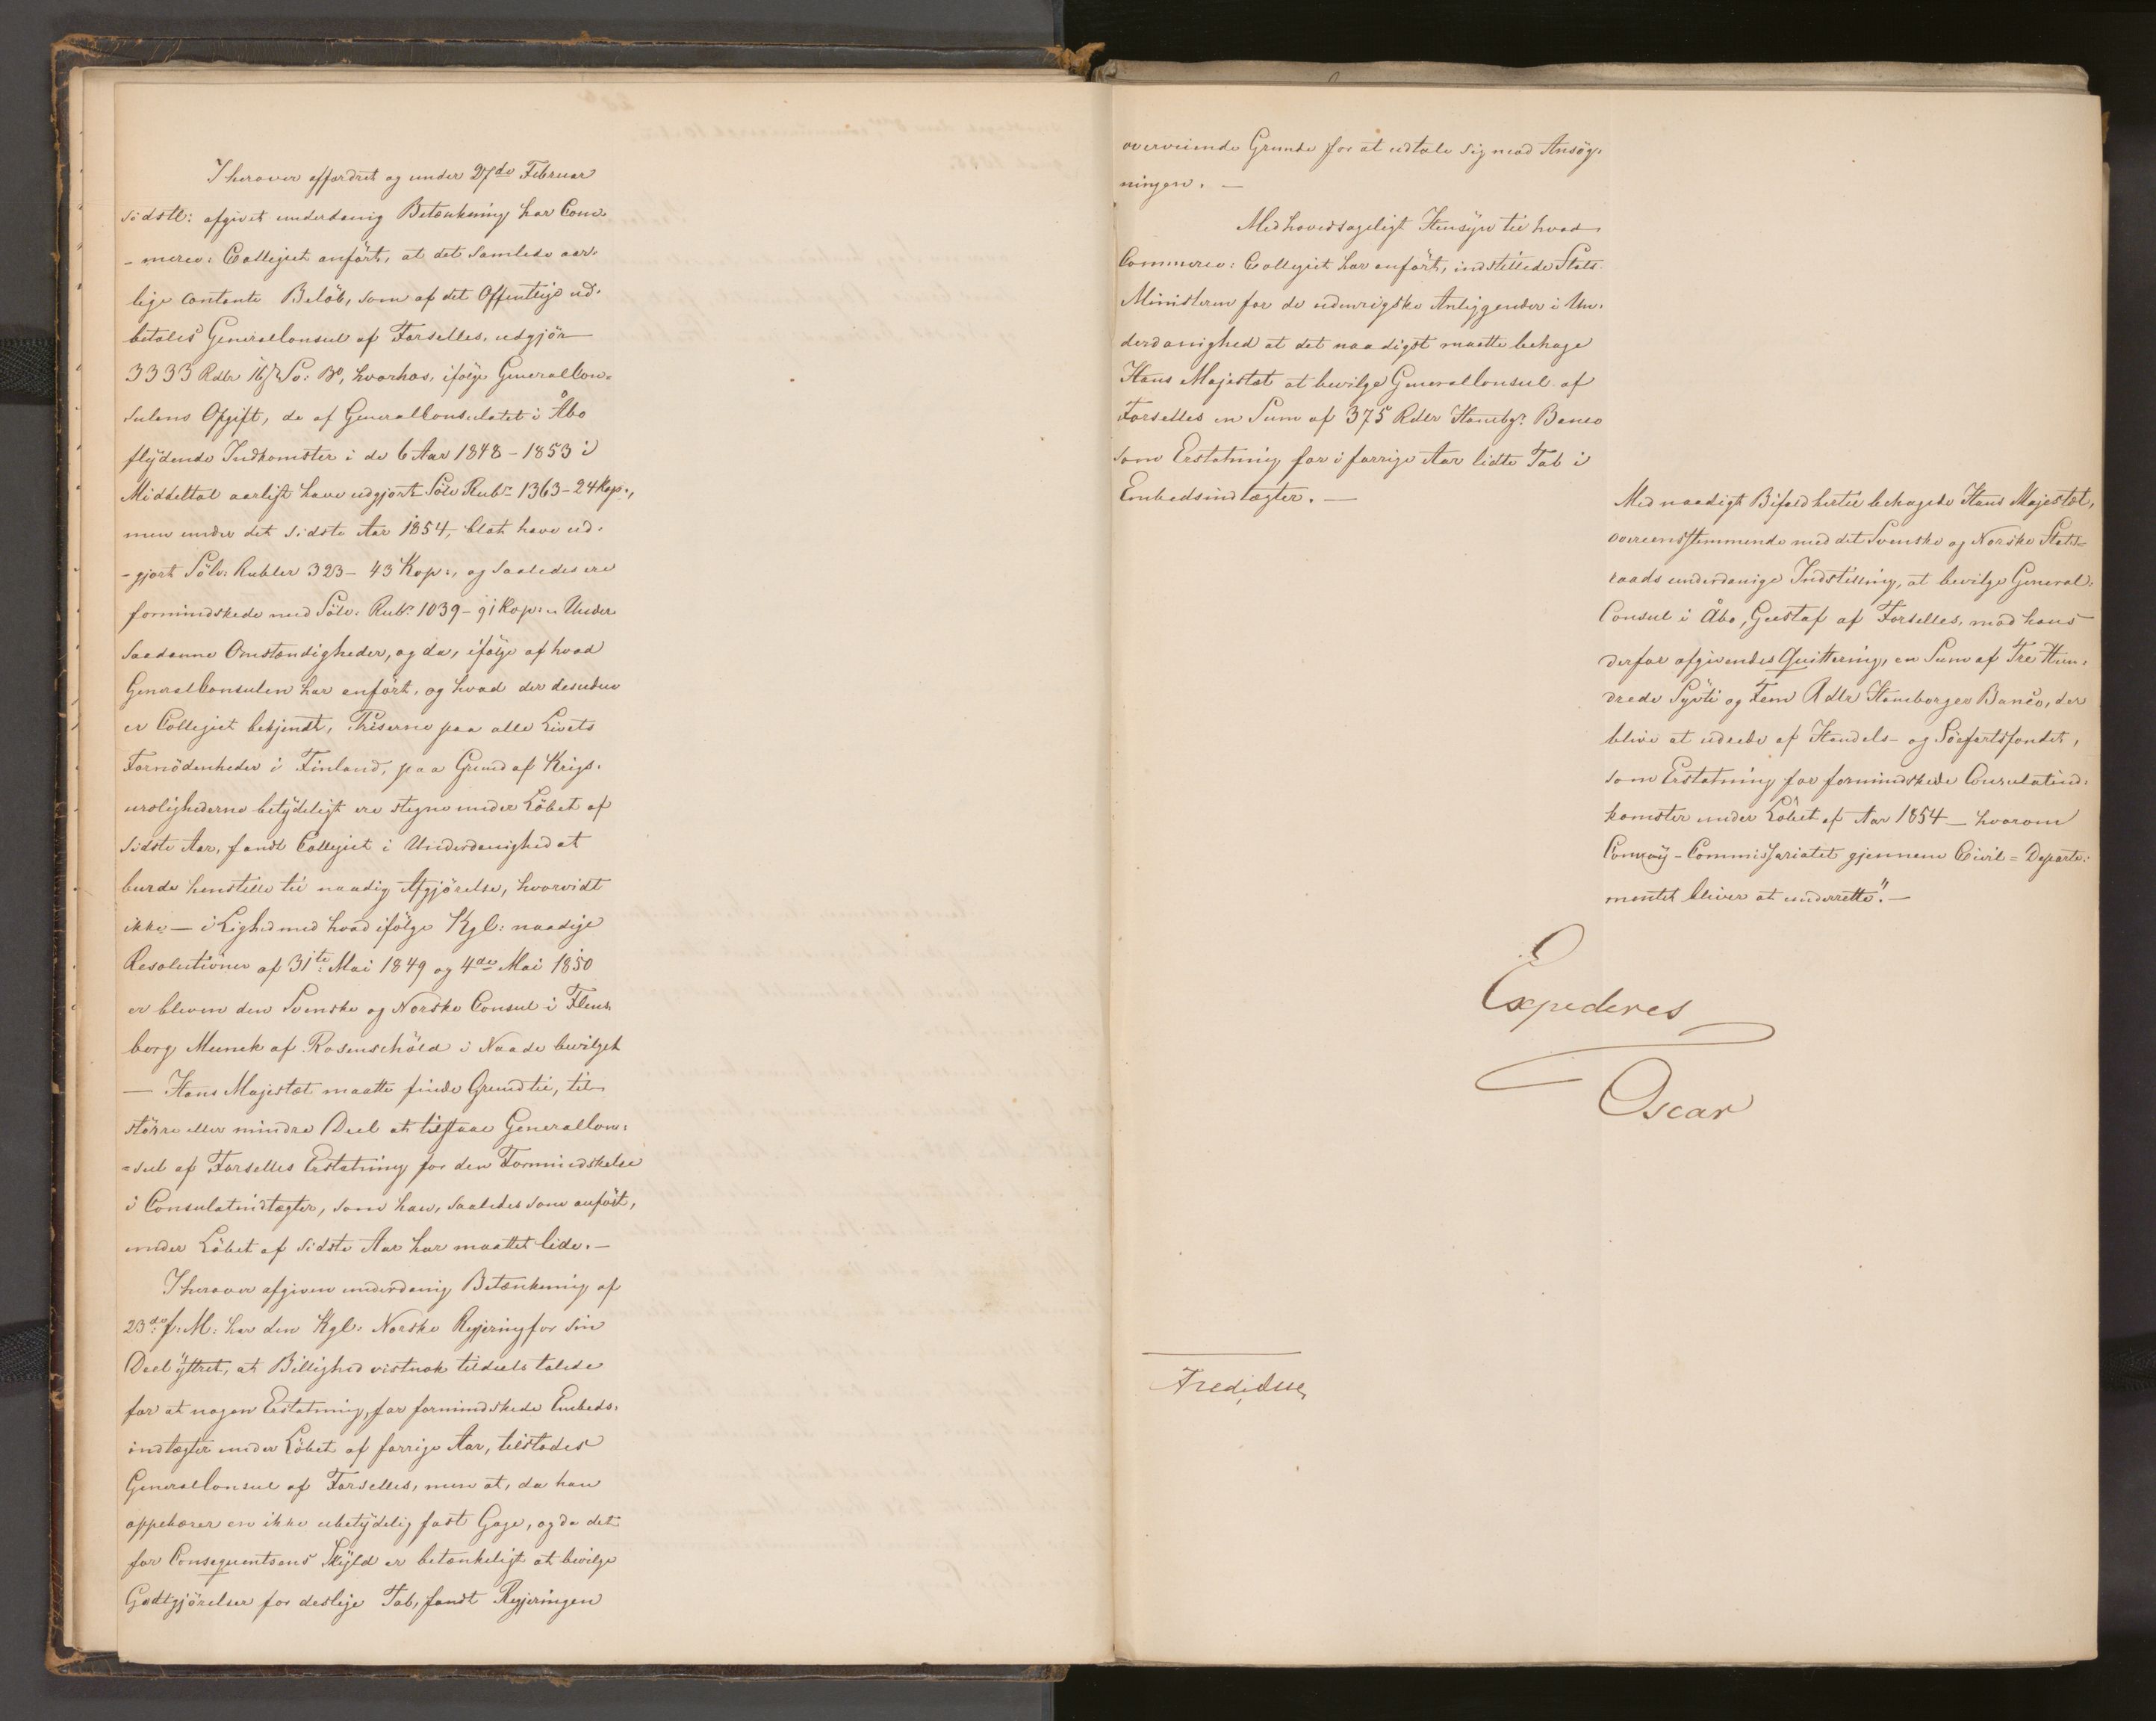 I herover affordret og under 27de Februar
sidstl: afgivet underdanig Betænkning har Com-
-merce: Collegiet anfört, at det samlede aar-
lige contente Belöb, som af det Offentlige ud-
betales GeneralConsul af Forselles, udgjör
3333 Rdlr 16 s. Bo, hvorhos, ifölge GeneralCon-
sulens Opgift, de af GeneralConsulatet i Åbo
flydende Indkomster i de 6 Aar 1848-1853 i
Middeltal aarligt have udgjort Sölv Rubr 1363-24 Kop:,
men under det sidste Aar 1854, blot have ud-
-gjort Sölv: Rubler 323- 43 Kop:, og saaledes ere
formindskede med Sölv: Rubr 1039-91 Kop:. Under
saadanne Omstændigheder, og da, ifölge af hvad
GeneralConsulen har anfört, og hvad der desuden
er Collegiet bekjendt, Priserne paa alle Livets
Fornödenheder i Finland, paa Grund af Krigs-
urolighederne betydeligt ere stegne under Löbet af
sidste Aar, fandt Collegiet i Underdanighed at
burde henstille til naadig Afgjörelse, hvorvidt
ikke — i Lighed med hvad ifölge Kgl: naadige
Resolutioner af 31te Mai 1849 og 4de Mai 1850
er bleven den Svenske og Norske Consul i Flens-
borg Munck af Rosenschöld i Naade bevilget
— Hans Majestæt maatte finde Grund til, til
större eller mindre Deel at tilstaae GeneralCon-
=sul af Forselles Erstatning for den Formindskelse
i Consulatindtægter, som han, saaledes som anfört,
under Löbet af sidste Aar har maattet lide.—
I herover afgiven underdanig Betænkning af
23de f: M: har den Kgl: Norske Regjering for sin
Deel yttret, at Billighed vistnok tildeels talede
for at nogen Erstatning, for formindskede Embeds-
indtægter under Löbet af forrige Aar, tilstodes
GeneralConsul af Forselles, men at, da han
oppebærer en ikke ubetydelig fast Gage, og da det
for Consequentsens Skyld er betænkeligt at bevilge
Godtgjörelser for deslige Tab, fandt Regjeringen
overveiende Grunde for at udtale sig mod Ansög-
ningen. —
Med hovedsageligt Hensyn til hvad
Commerce: Collegiet har anfört, indstillede Stats-
Ministeren for de udenrigske Anliggender i Un-
derdanighed at det naadigst maatte behage
Hans Majestæt at bevilge GeneralConsul af
Forselles en Sum af 375 Rdlr Hambgr Banco
som Erstatning for i forrige Aar lidte Tab i
Embedsindtægter. —
Med naadigt Bifald hertil behagede Hans Majestæt,
overeensstemmende med det Svenske og Norske Stats-
raads underdanige Indstilling, at bevilge General-
Consul i Åbo, Gustaf af Forselles, mod hans
derfor afgivendes Quittering, en Sum af Tre Hun-
drede Sytti og Fem Rdlr Hamborger Banco, der
blive at udrede af Handels- og Söefartsfondet,
som Erstatning for formindskede Consulatind-
komster under Löbet af Aar 1854 — hvorom
Convoy-Commissariatet gjennem Civil=Departe-
mentet bliver at underrette".—
Expederes
Oscar